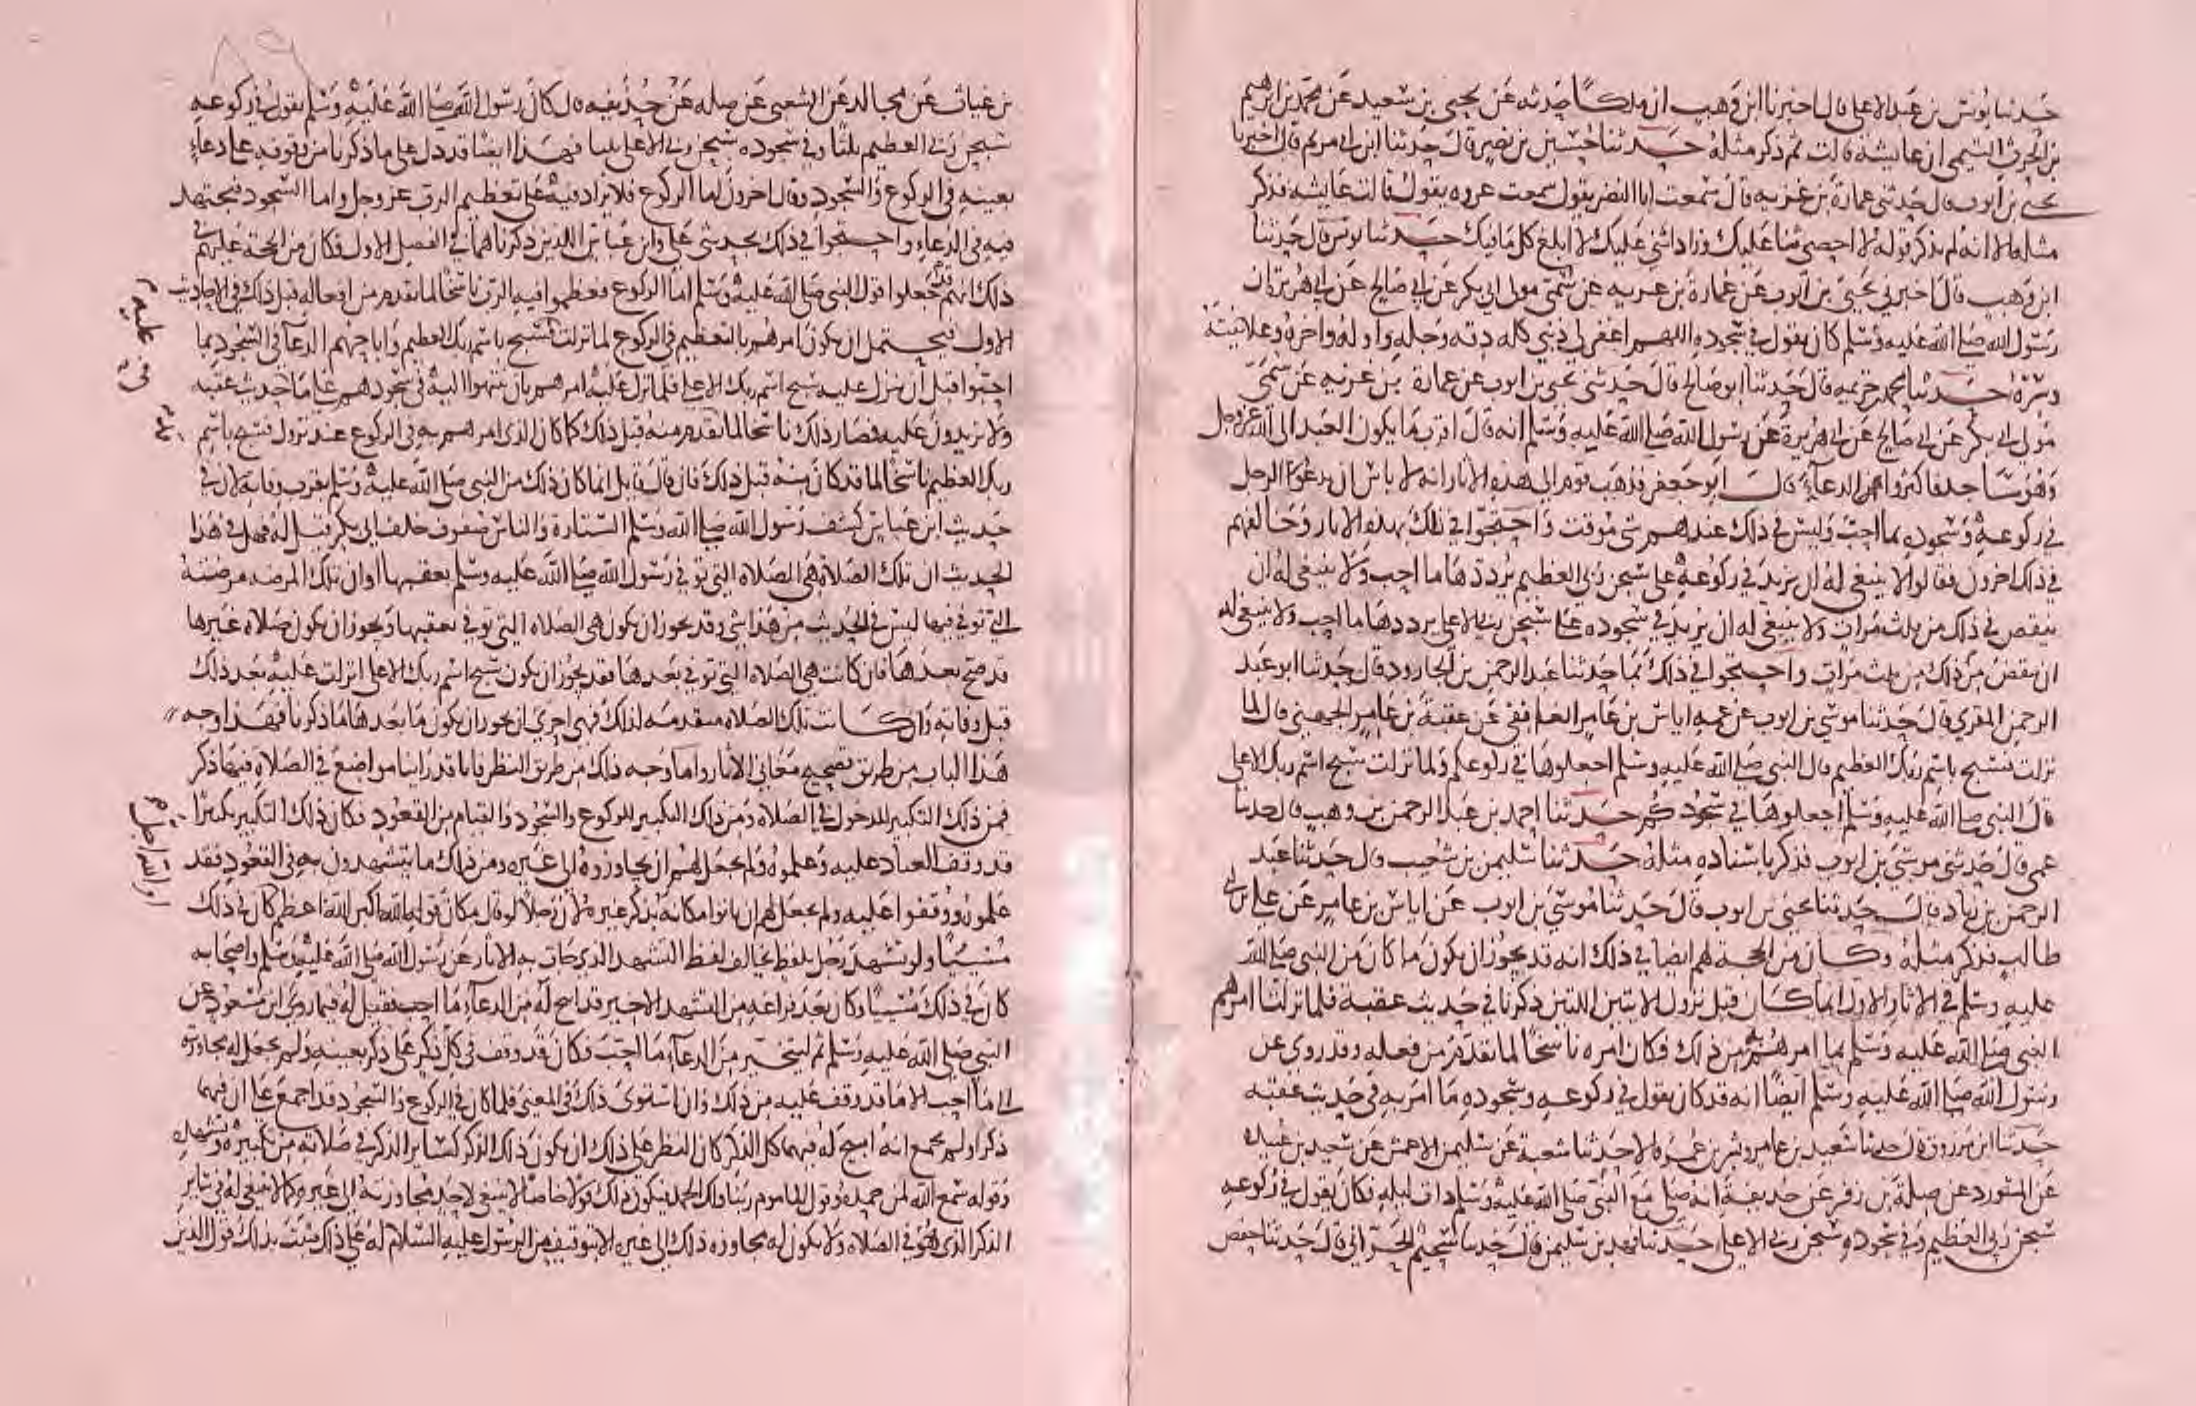 حدثنا يونس بن عبد الاعلى قال اخبرنا ابن وهب ان ملكا حدثه عن يحيى بن سعيد عن محمد بن ابرهيم
بن الحرث التيمي ان عايشة قالت ثم ذكر مثله حدثنا حسين بن نصير قال حدثنا ابن ابي مريم قال اخبرنا
يحيى بن ايوب قال حدثني عمارة بن غزيه قال سمعت ابا النضر يقول سمعت عروه يقول قالت عايشه فذكر
مثله الا انه لم يذكر قوله لا احصي ثنا عليك وزاد اثني عليك لا ابلغ كل ما فيك حدثنا يونس قال حدثنا
ابن وهب قال اخبرني يحيى بن ايوب عن عمارة بن غزيه عن سمي مولى ابي بكر عن ابي صالح عن ابي هريره ان
رسول الله صلى الله عليه وسلم كان يقول في سجوده اللهم اغفر لي ذنبي كله دقه وجله واوله واخره وعلانيته
وسره حدثنا محمد بن خزيمه قال حدثنا ابو صالح قال حدثني يحيى بن ايوب عن عمارة بن غزيه عن سمي
مولى ابي بكر عن ابي صالح عن ابي هريرة عن رسول الله صلى الله عليه وسلم انه قال اقرب ما يكون العبد الى الله عز وجل
وهو ساجد فاكثروا من الدعاء قال ابو جعفر فذهب قوم الى هذه الاثار انه لا باس ان يدعو الرجل
في ركوعه وسجوده بما احب وليس في ذلك عندهم شي موقت واحتجوا في ذلك بهذه الاثار وخالفهم
في ذلك اخرون فقالوا لا ينبغي له ان يزيد في ركوعه على سبحن ربي العظيم يرددها ما احب ولا ينبغي له ان
ينقص في ذلك من ثلث مرات ولا ينبغي له ان يزيد في سجوده على سبحن ربي الاعلى يرددها ما احب ولا ينبغي له
ان ينقص من ذلك من ثلث مرات واحتجوا في ذلك بما حدثنا عبد الرحمن بن الجارود قال حدثنا ابو عبد
الرحمن المقري قال حدثنا موسى بن ايوب عن عمه اياس بن عامر الغافقي عن عقبة بن عامر الجهني قال لما
نزلت فسبح باسم ربك العظيم قال النبي صلى الله عليه وسلم اجعلوها في ركوعكم ولما نزلت سبح اسم ربك الاعلى
قال النبي صلى الله عليه وسلم اجعلوها في سجودكم حدثنا احمد بن عبد الرحمن بن وهب قال حدثنا
عمي قال حدثني موسى بن ايوب فذكر باسناده مثله حدثنا سليمن بن شعيب قال حدثنا عبد
الرحمن بن زياد قال حدثنا يحيى بن ايوب قال حدثنا موسى بن ايوب عن اياس بن عامر عن علي بن ابي
طالب فذكر مثله وكان من الحجة لهم ايضا في ذلك انه قد يجوز ان يكون ما كان من النبي صلى الله
عليه وسلم في الاثار الاول انما كان قبل نزول الايتين اللتين ذكرنا في حديث عقبة فلما نزلتا امرهم
النبي صلى الله عليه وسلم بما امرهم به من ذلك فكان امره ناسخا لما تقدم من فعله وقد روي عن
رسول الله صلى الله عليه وسلم ايضا انه قد كان يقول في ركوعه وسجوده ما امر به في حديث عقبه
حدثنا ابن مرزوق قال حدثنا سعيد بن عامر وبشر بن عمر قالا حدثنا شعبة عن سليمن الاعمش عن سعيد بن عبيده
عن المستورد عن صلة بن زفر عن حذيفة انه صلى مع النبي صلى الله عليه وسلم ذات ليله فكان يقول في ركوعه
سبحن ربي العظيم وفي سجوده سبحن ربي الاعلى حدثنا فهد بن سليمن قال حدثنا سحيم الحراني قال حدثنا حفص
بن غياث عن مجالد عن الشعبي عن صله عن حذيفه قال كان رسول الله صلى الله عليه وسلم يقول في ركوعه
سبحن ربي العظيم ثلثا وفي سجوده سبحن ربي الاعلى ثلثا فهذا ايضا قد دل على ما ذكرنا من وقوفه على دعاء
بعينه في الركوع والسجود وقال اخرون اما الركوع فلا يزاد فيه على تعظيم الرب عز وجل واما السجود فيجتهد
فيه في الدعاء واحتجوا في ذلك بحديثي علي وابن عباس اللذين ذكرناهما في الفصل الاول فكان من الحجة عليهم في
ذلك انهم قد جعلوا قول النبي صلى الله عليه وسلم اما الركوع فعظموا فيه الرب ناسخا لما تقدم من افعاله قبل ذلك في الاحاديث
الاول فيحتمل ان يكون امرهم بالتعظيم في الركوع لما نزلت فسبح باسم ربك العظيم واباحهم الدعا في السجود بما
احبوا قبل ان ينزل عليه سبح اسم ربك الاعلى فلما نزل عليه امرهم بان ينتهوا اليه في سجودهم على ما في حديث عقبه
ولا يزيدون عليه فصار ذلك ناسخا لما تقدم منه قبل ذلك كما كان الذي امرهم به في الركوع عند نزول فسبح باسم
ربك العظيم ناسخا لما قد كان منه قبل ذلك فان قال قايل انما كان ذلك من النبي صلى الله عليه وسلم بقرب وفاته لان في
حديث ابن عباس كشف رسول الله صلى الله وسلم الستارة والناس صفوف خلف ابي بكر قيل له فهل في هذا
الحديث ان تلك الصلاة هي الصلاة التي توفي رسول الله صلى الله عليه وسلم بعقبها او ان تلك المرضه مرضته
التي توفي فيها ليس في الحديث من هذا شي وقد يجوز ان يكون هي الصلاه التي توفي بعقبها ويجوز ان يكون صلاه غيرها
قد صح بعدها فان كانت هي الصلاه التي توفي بعدها فقد يجوز ان يكون سبح اسم ربك الاعلى انزلت عليه بعد ذلك
قبل وفاته وان كانت تلك الصلاه متقدمه لذلك فهي احرى ان يجوز ان يكون ما بعدها ما ذكرنا فهذا وجه
هذا الباب من طريق تصحيح معاني الاثار واما وجه ذلك من طريق النظر فانا قد راينا مواضع في الصلاه فيها ذكر
فمن ذلك التكبير للدخول في الصلاه ومن ذلك التكبير للركوع والسجود والقيام من القعود فكان ذلك التكبير تكبيرا
قد وقف العباد عليه وعلموه ولم يجعل لهم ان يجاوزوه الى غيره ومن ذلك ما يتشهدون به في القعود فقد
علموه ووقفوا عليه ولم يجعل لهم ان ياتوا مكانه بذكر غيره لان رجلا لو قال مكان قوله الله اكبر الله اعظم كان في ذلك
مسيئا ولو تشهد رجل بلفظ يخالف لفظ التشهد الذي جات به الاثار عن رسول الله صلى الله عليه وسلم واصحابه
كان في ذلك مسيئا وكان بعد فراغه من التشهد الاخير قد ابيح له من الدعاء ما احب فقيل له فيما روى ابن مسعود عن
النبي صلى الله عليه وسلم ثم ليتخير من الدعاء ما احب فكان قد وقف في كل ذكر على ذكر بعينه ولم يجعل له مجاوزته
الى ما احب الا ما قد وقف عليه من ذلك وان استوى ذلك في المعنى فلما كان في الركوع والسجود قد اجمع على ان فيهما
ذكرا ولم يجمع انه ابيح له فيهما كل الذكر كان النظر على ذلك ان يكون ذلك الذكر كساير الذكر في صلاته من تكبيره وتشهده
وقوله سمع الله لمن حمده وقول الماموم ربنا ولك الحمد فيكون ذلك قولا خاصا لا ينبغي لاحد مجاوزته الى غيره كما لا ينبغي له في ساير
الذكر الذي هو في الصلاه ولا يكون له مجاوزه ذلك الى غيره الا بتوقيف من الرسول عليه السلام له على ذلك فثبت بذلك قول الذين